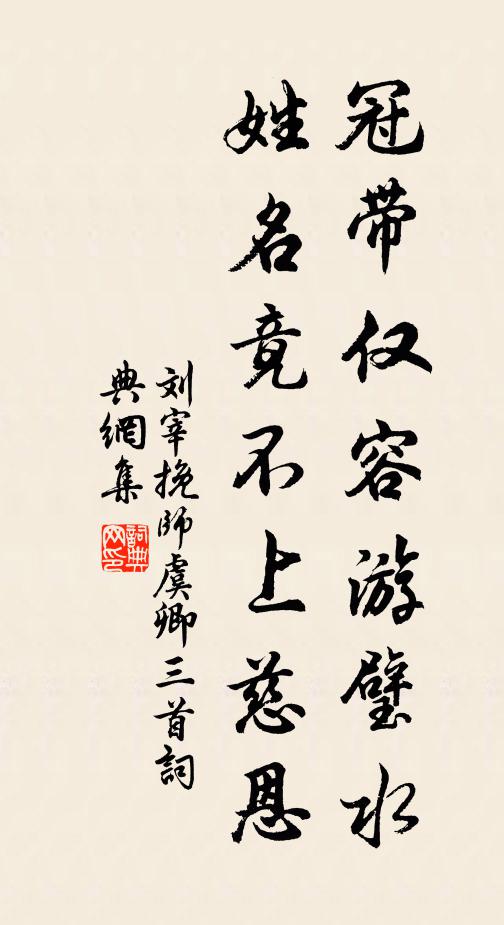 冠带仅容游璧水
姓名竟不上慈恩
刘宰挽师虞卿三首詞
典網集
詞典網印